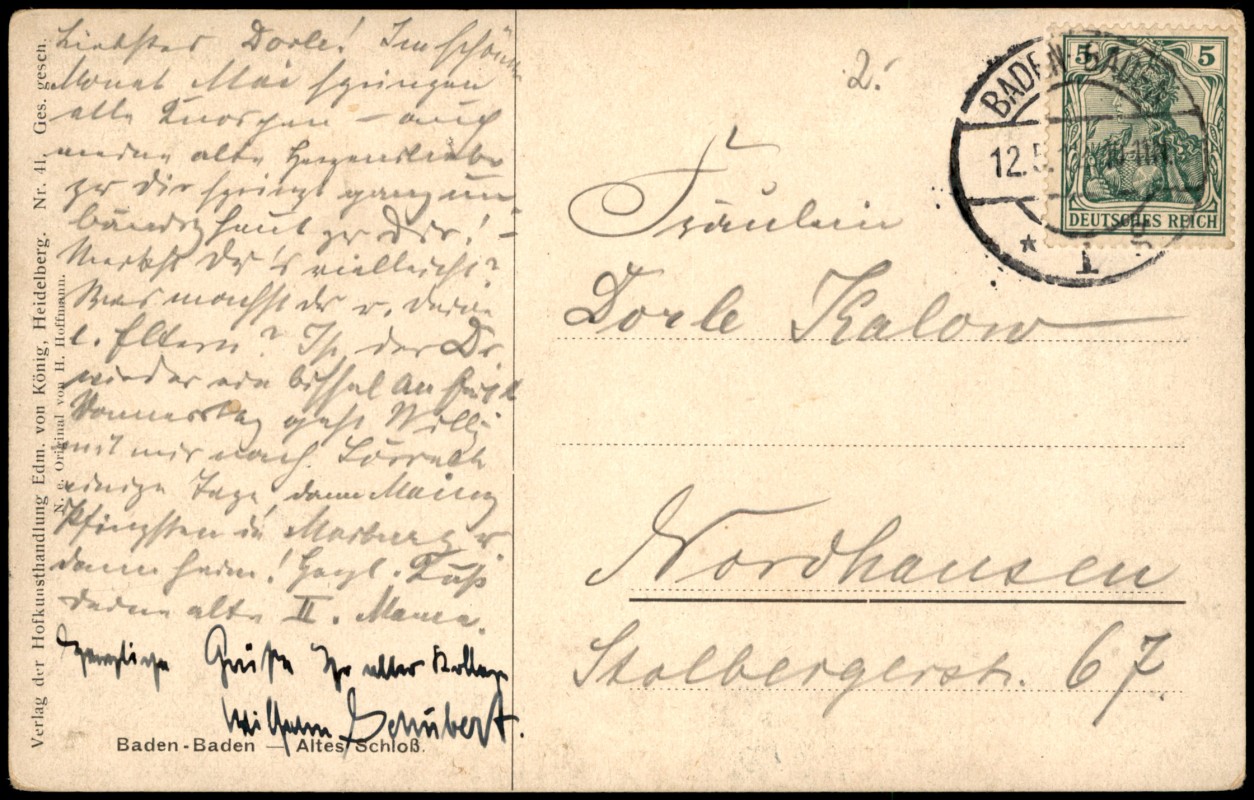 Liebstes Dorle! Im schönen
Monat Mai springen
alle Knospen – auch
meine alte Herzensliebe
zu dir springt ganz un-
bändig heut zu Dir! –
Merkst Du's vielleicht?
Was machst du u. deine
l. Eltern? Ist der Dr.
wieder ein bissel
Donnerstag geht Willy
mit mir nach Lörrach
einige Tage, dann Mainz
Pfingsten in Marburg u.
dann heim! Herzl. Kuß
deine alte II. Mama.
Herzliche Grüße Ihr alter
Wilhelm Schubert.
Baden-Baden — Altes Schloß.
Verlag der Hofkunsthandlung Edm. von König, Heidelberg. Nr. 41. Ges. gesch.
N. e. Original von H. Hoffmann.
2.
BADEN-BADEN
12.5.
* 1
5 5
DEUTSCHES REICH
Fräulein
Dorle Kalow
Nordhausen
Stolbergerstr. 67.